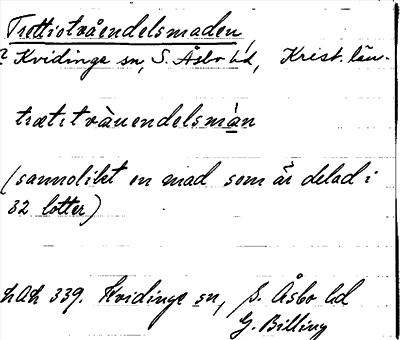 Trettiotvåendelsmaden,
? Kvidinge sn, S. Åsbo hd, Krist. län.
trætitvàuendelsmàn
(sannolikt en mad som är delad i
32 lotter)
hAh 339. Kvidinge sn, S. Åsbo hd
G. Billing